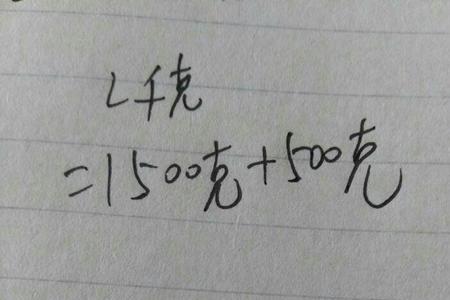 2千克
=1500克+500克